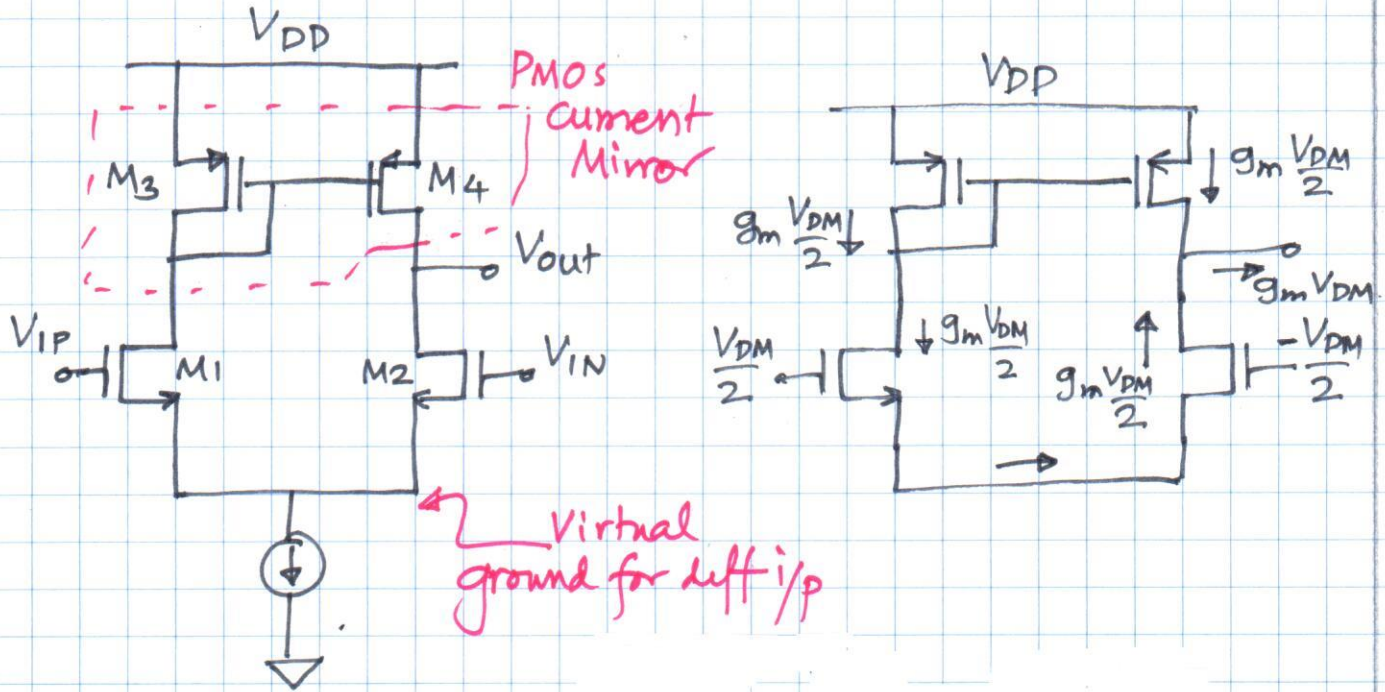 VDD
PMOS
Current
Mirror
M3
M4
Vout
VIP
M1
M2
VIN
Virtual
ground for diff i/p
VDD
gm VDM/2
gm VDM/2
gm VDM
VDM/2
gm VDM/2
gm VDM/2
-VDM/2